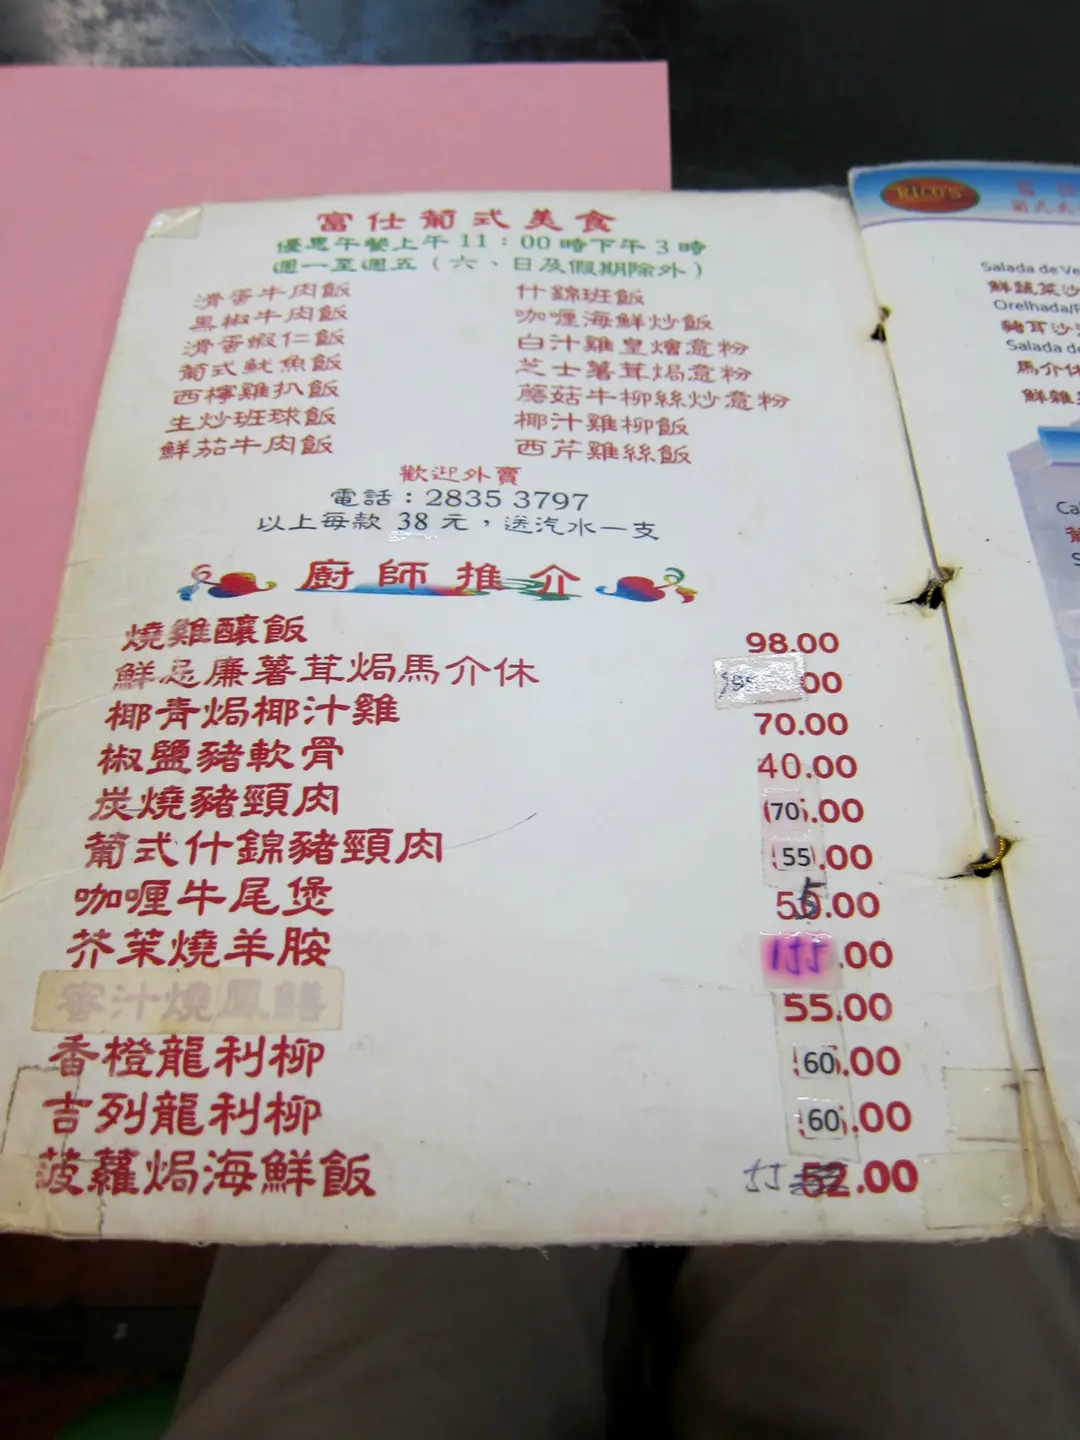 富仕葡式美食
優惠午餐上午11：00時下午3時
週一至週五（六、日及假期除外）
滑蛋牛肉飯
黑椒牛肉飯
滑蛋蝦仁飯
葡式魷魚飯
西檸雞扒飯
生炒班球飯
鮮茄牛肉飯
什錦班飯
咖喱海鮮炒飯
白汁雞皇燴意粉
芝士薯茸焗意粉
蘑菇牛柳絲炒意粉
椰汁雞柳飯
西芹雞絲飯
歡迎外賣
電話：2835 3797
以上每款 38 元，送汽水一支
廚師推介
燒雞釀飯 98.00
鮮忌廉薯茸焗馬介休 .00
椰青焗椰汁雞 70.00
椒鹽豬軟骨 40.00
炭燒豬頸肉 70.00
葡式什錦豬頸肉 55.00
咖喱牛尾煲 55.00
芥茉燒羊胺 155.00
汁燒鳳鱔 55.00
香橙龍利柳 60.00
吉列龍利柳 60.00
菠蘿焗海鮮飯 55 52.00
RICO'S
富仕
葡式美
Salada de Ve
鮮蔬菜沙
Orelhada/
豬耳沙
Salada de
馬介休
鮮雜
Ca
葡
S